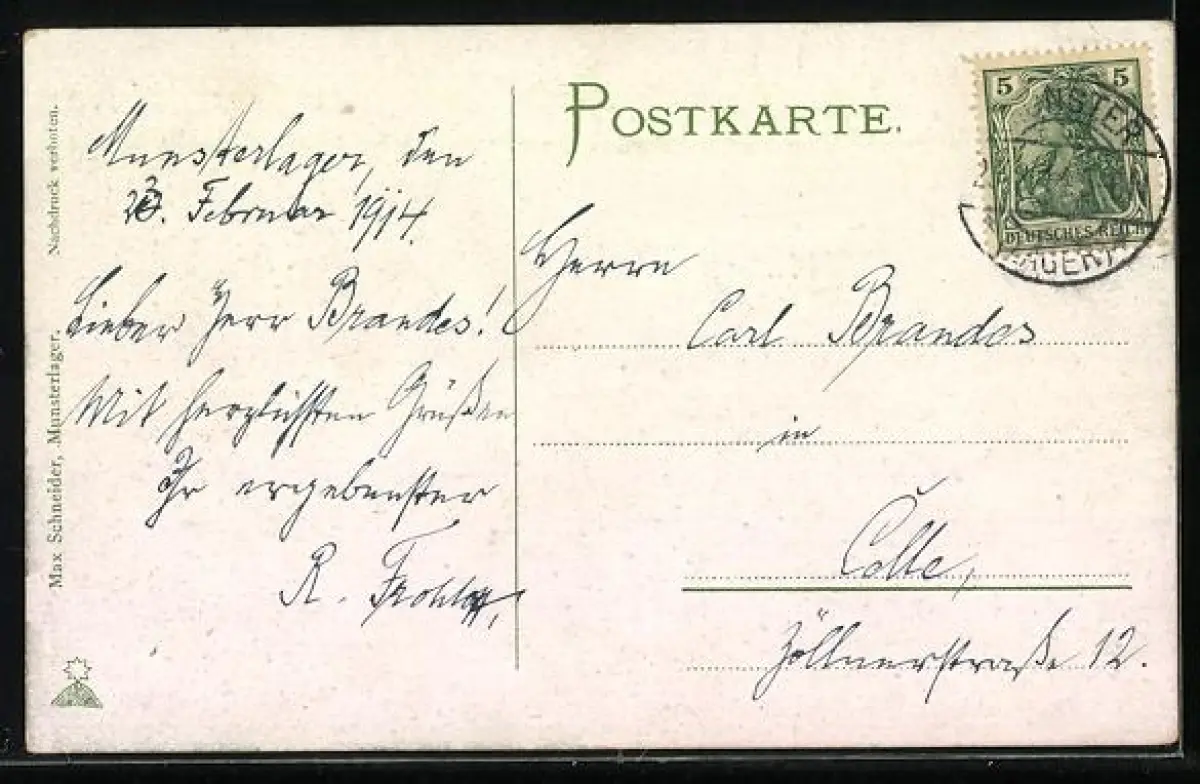 Max Schneider, Munsterlager. Nachdruck verboten.
Munsterlager, den
23. Februar 1914.
Lieber Herr Brandes!
Mit herzlichsten Grüßen
Ihr ergebenster
R.
POSTKARTE.
5 5
DEUTSCHES REICH
Herrn
Carl Brandes
in
Celle,
Zöllnerstraße 12.